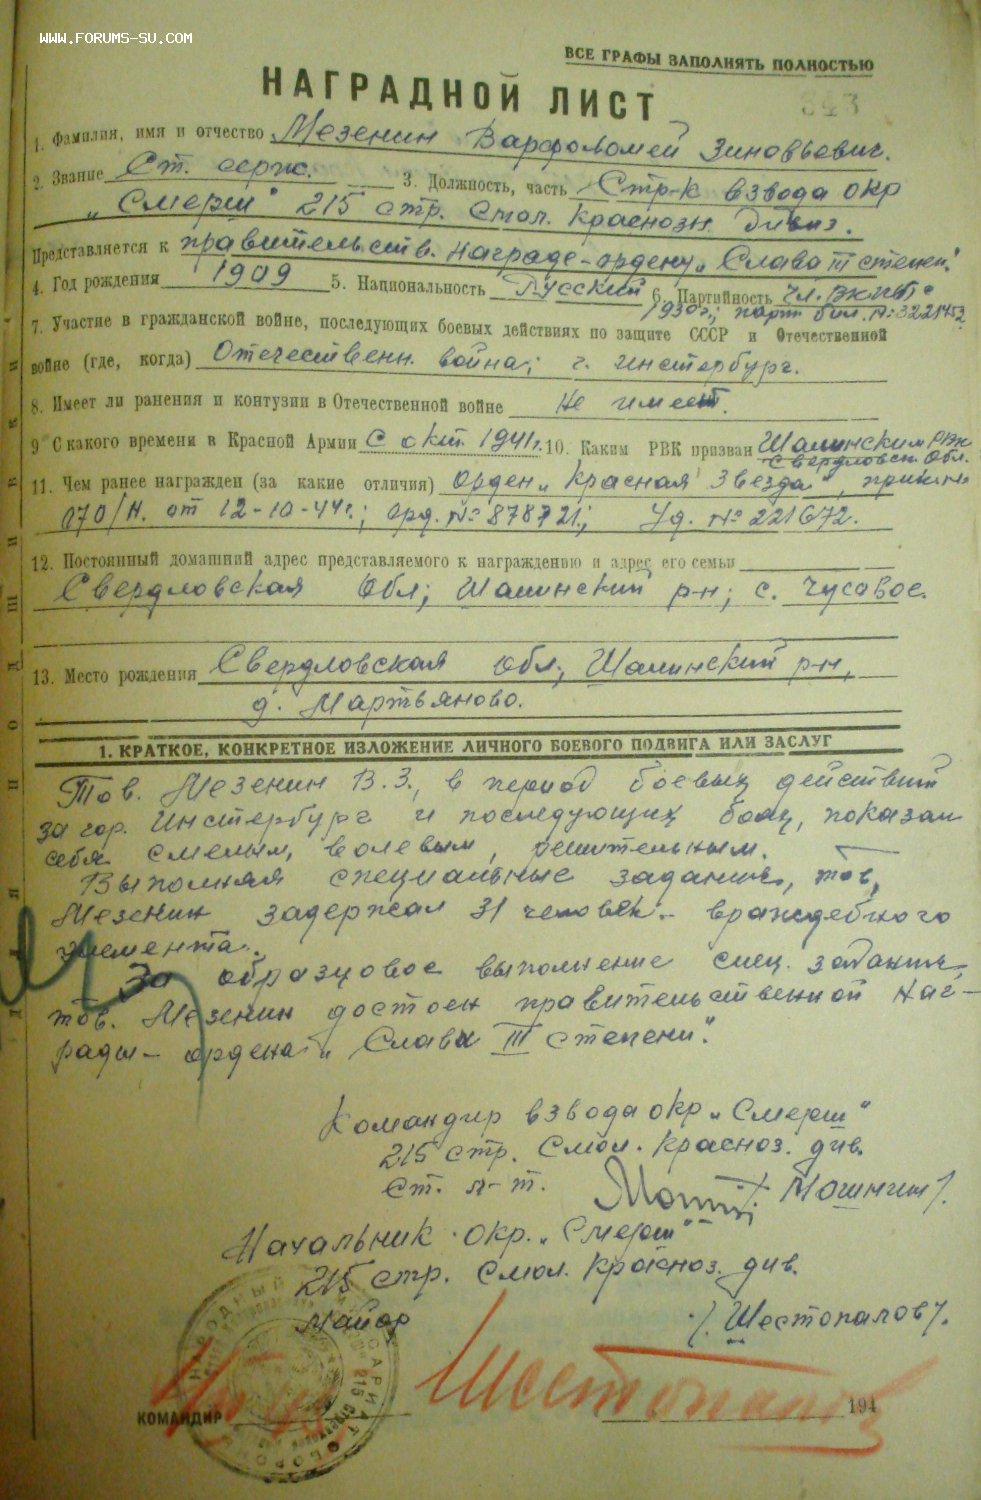 WWW.FORUMS-SU.COM
ВСЕ ГРАФЫ ЗАПОЛНЯТЬ ПОЛНОСТЬЮ
НАГРАДНОЙ ЛИСТ
343
1. Фамилия, имя и отчество Мезенин Варфоломей Зиновьевич.
2. Звание Ст. серж. 3. Должность, часть Стр-к взвода окр
„Смерш" 215 стр. Смол. Краснозн. дивиз.
Представляется к правительств. награде-ордену „Слава III степен."
4. Год рождения 1909 5. Национальность Русский 6. Партийность Чл. ВКП(б) с
1930г; парт бил. №: 3221452
7. Участие в гражданской войне, последующих боевых действиях по защите СССР и Отечественной
войне (где, когда) Отечественн. война; г. Инстербург.
8. Имеет ли ранения и контузии в Отечественной войне Не имеет.
9 С какого времени в Красной Армии С окт. 1941г. 10. Каким РВК призван Шалинским РВК
Свердловск. Обл.
11. Чем ранее награжден (за какие отличия) Орден „Красная Звезда",
070/Н. от 12-10-44г.; орд. № 878721; Уд. № 221672.
12. Постоянный домашний адрес представляемого к награждению и адрес его семьи
Свердловская Обл; Шалинский р-н; с. Чусавое.
13. Место рождения Свердловская обл; Шалинский р-н,
д. Мартьяново.
1. КРАТКОЕ, КОНКРЕТНОЕ ИЗЛОЖЕНИЕ ЛИЧНОГО БОЕВОГО ПОДВИГА ИЛИ ЗАСЛУГ
Тов. Мезенин В.З., в период боевых действий
за гор. Инстербург и последующих боях, показал
себя смелым, волевым, решительным.
Выполняя специальные задания, тов.
Мезенин задержал 31 человек. враждебного
элемента.
За образцовое выполнение спец. задания,
тов. Мезенин достоен правительственной наг-
рады - ордена „Слава III степени".
Командир взвода окр „Смерш"
215 стр. Смол. Красноз. див.
Ст. л-т. /Мошнгин/.
Начальник окр. „Смерш"
215 стр. Смол. Красноз. див.
майор /. Шестопалов/.
Шестопалов
КОМАНДИР 194